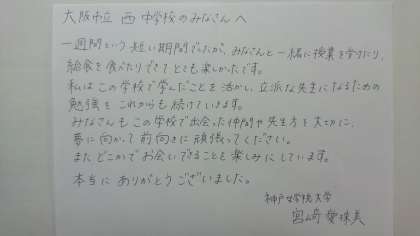 大阪市立 西 中学校のみなさんへ
一週間という短い期間でしたが、みなさんと一緒に授業を受けたり、
給食を食べたりできてとても楽しかったです。
私はこの学校で学んだことを活かし、立派な先生になるための
勉強をこれからも続けていきます。
みなさんもこの学校で出会った仲間や先生方を大切に、
夢に向かって前向きに頑張ってください。
またどこかでお会いできることも楽しみにしています。
本当にありがとうございました。
神戸女学院大学
宮崎 愛珠美